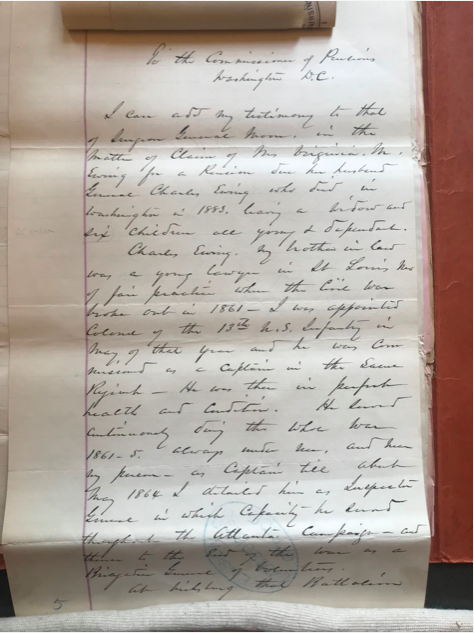 To the Commissioner of Pensions
Washington D.C.
I can add my testimony to that
of Surgeon General Moore. in the
Matter of Claim of Mrs Virginia. M.
Ewing for a Pension due her husband
General Charles Ewing who died in
Washington in 1883. leaving a widow and
six children all young & dependent.
Charles Ewing. my brother in law
was a young lawyer in St Louis Mo
of fair practice when the Civil War
broke out in 1861 - I was appointed
Colonel of the 13th U.S. Infantry in
May of that year and he was Com
missioned as a Captain in the Same
Regimt - He was then in perfect
health and Condition. He served
Continuously during the whole War
1861-5. always under me. and near
my person - as Captain till about
May 1864 I detailed him as Inspector
General in which Capacity he served
throughout the Atlanta Campaign - and
thence to the End of the war as a
Brigadier General of Volunteers.
At Vicksburg that Battalion
5